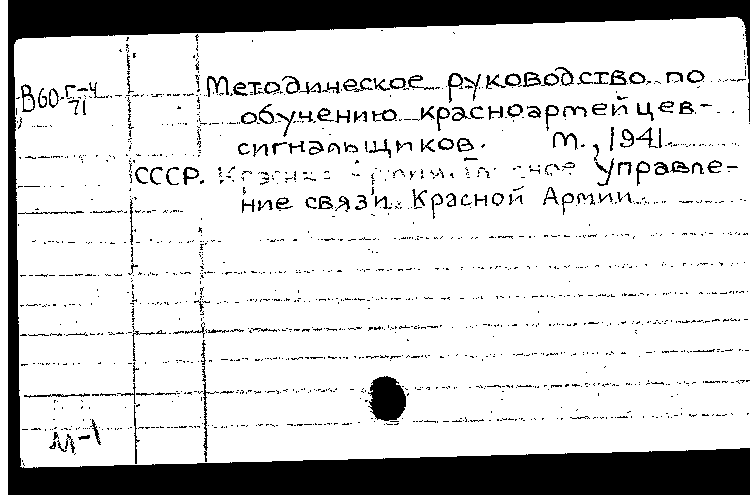 В60 Г-4 Методическое руководство по
71 обучению красноармейцев-
сигнальщиков. М., 1941.
СССР. Красная Армия. Главное управле-
ние связи Красной Армии.
М-1